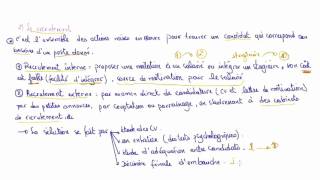 1) le recrutement
c'est l'ensemble des actions mises en œuvre pour trouver un candidat qui correspond aux
besoins d'un poste donné.
stagiaire
① Recrutement interne : proposer une mutation à un salarié ou intégrer un stagiaire, son coût
est faible (facilité d'intégrer), source de motivation pour le salarié
② Recrutement externe : par moyen direct de candidature (CV et lettre de motivation)
par des petites annonces, par cooptation ou parrainage, en s'adressant à des cabinets
de recrutement etc
→ la sélection se fait par
étude des CV.
un entretien (des tests psychologiques)
étude d'adéquation entre candidats
Décision finale d'embauche